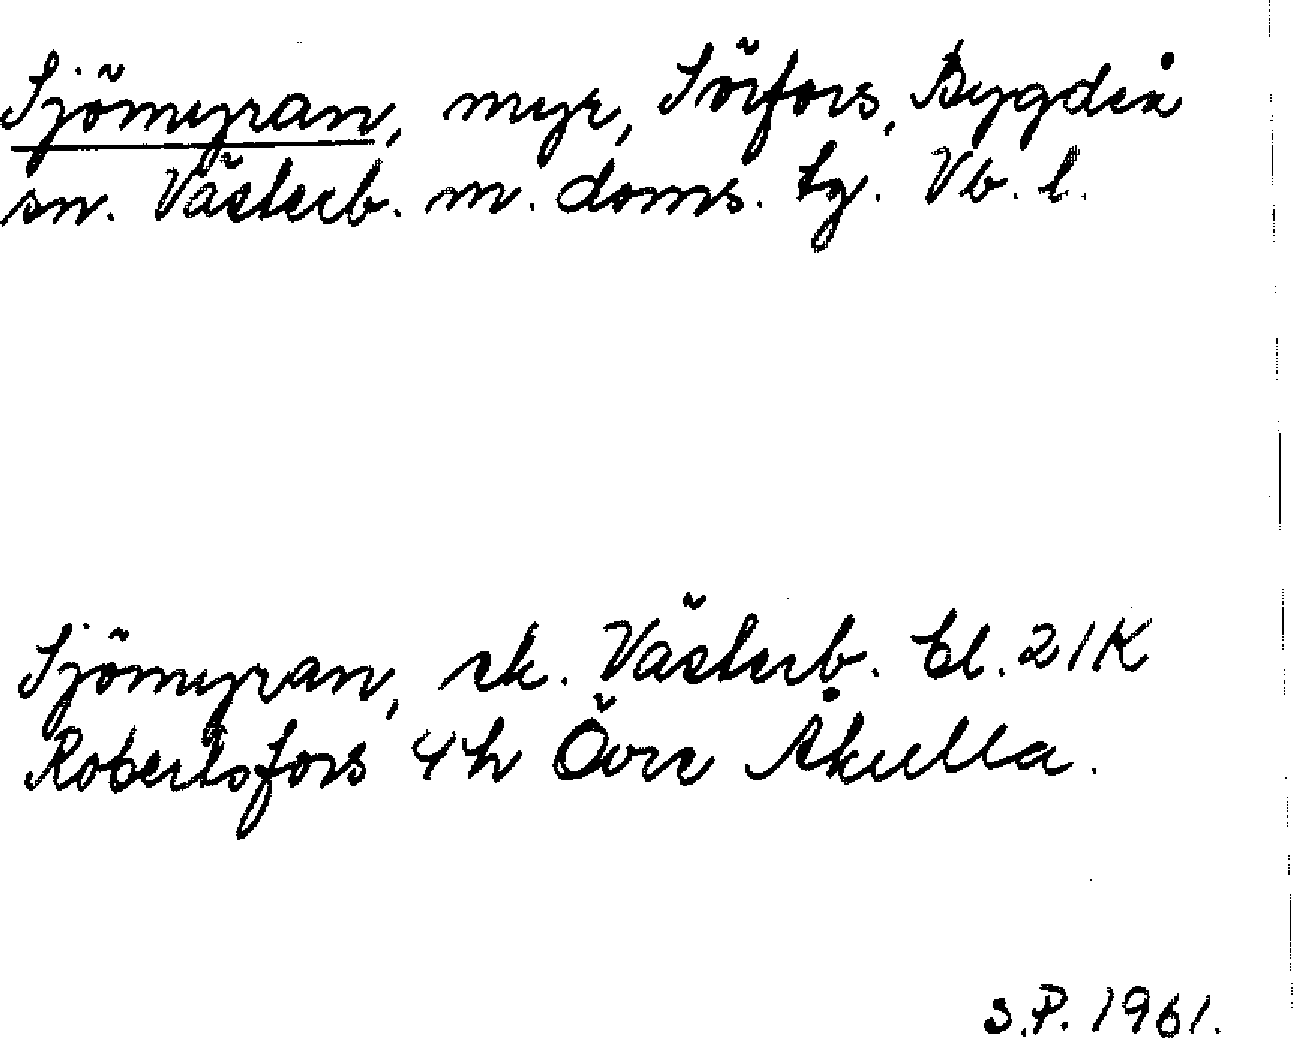 Sjömyran, myr, Sörfors, Bygdeå
sn. Västerb. m. doms. tg. Vb. l.
Sjömyran, ek. Västerb. bl. 21K
Robertsfors 4h Övre Åkulla.
S.P. 1961.